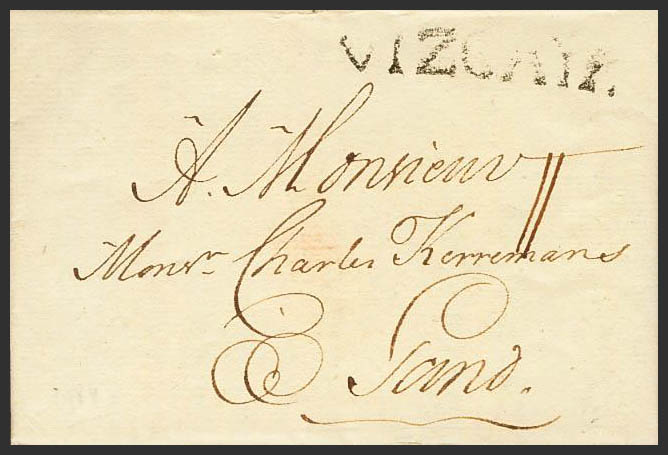 VIZCAYA.
A. Monsieur
Monsr. Charles Kerremans
E Gand.